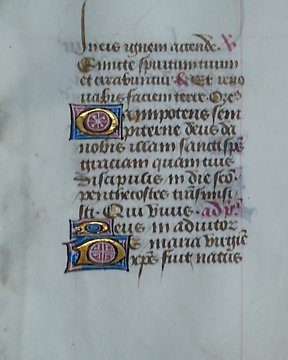 lucis ignem accende. V
Emitte spiritum tuum
et creabuntur & Et reno
uabis faciem terre. Ores
Omnipotens sem
piterne deus da
nobis illam sancti sps
graciam quam tuis
discipulis in die sco
penthecostes transmisi
sti. Qui viuis. ad ps
Deus in adiutor
De maria virgie
xps fuit natus